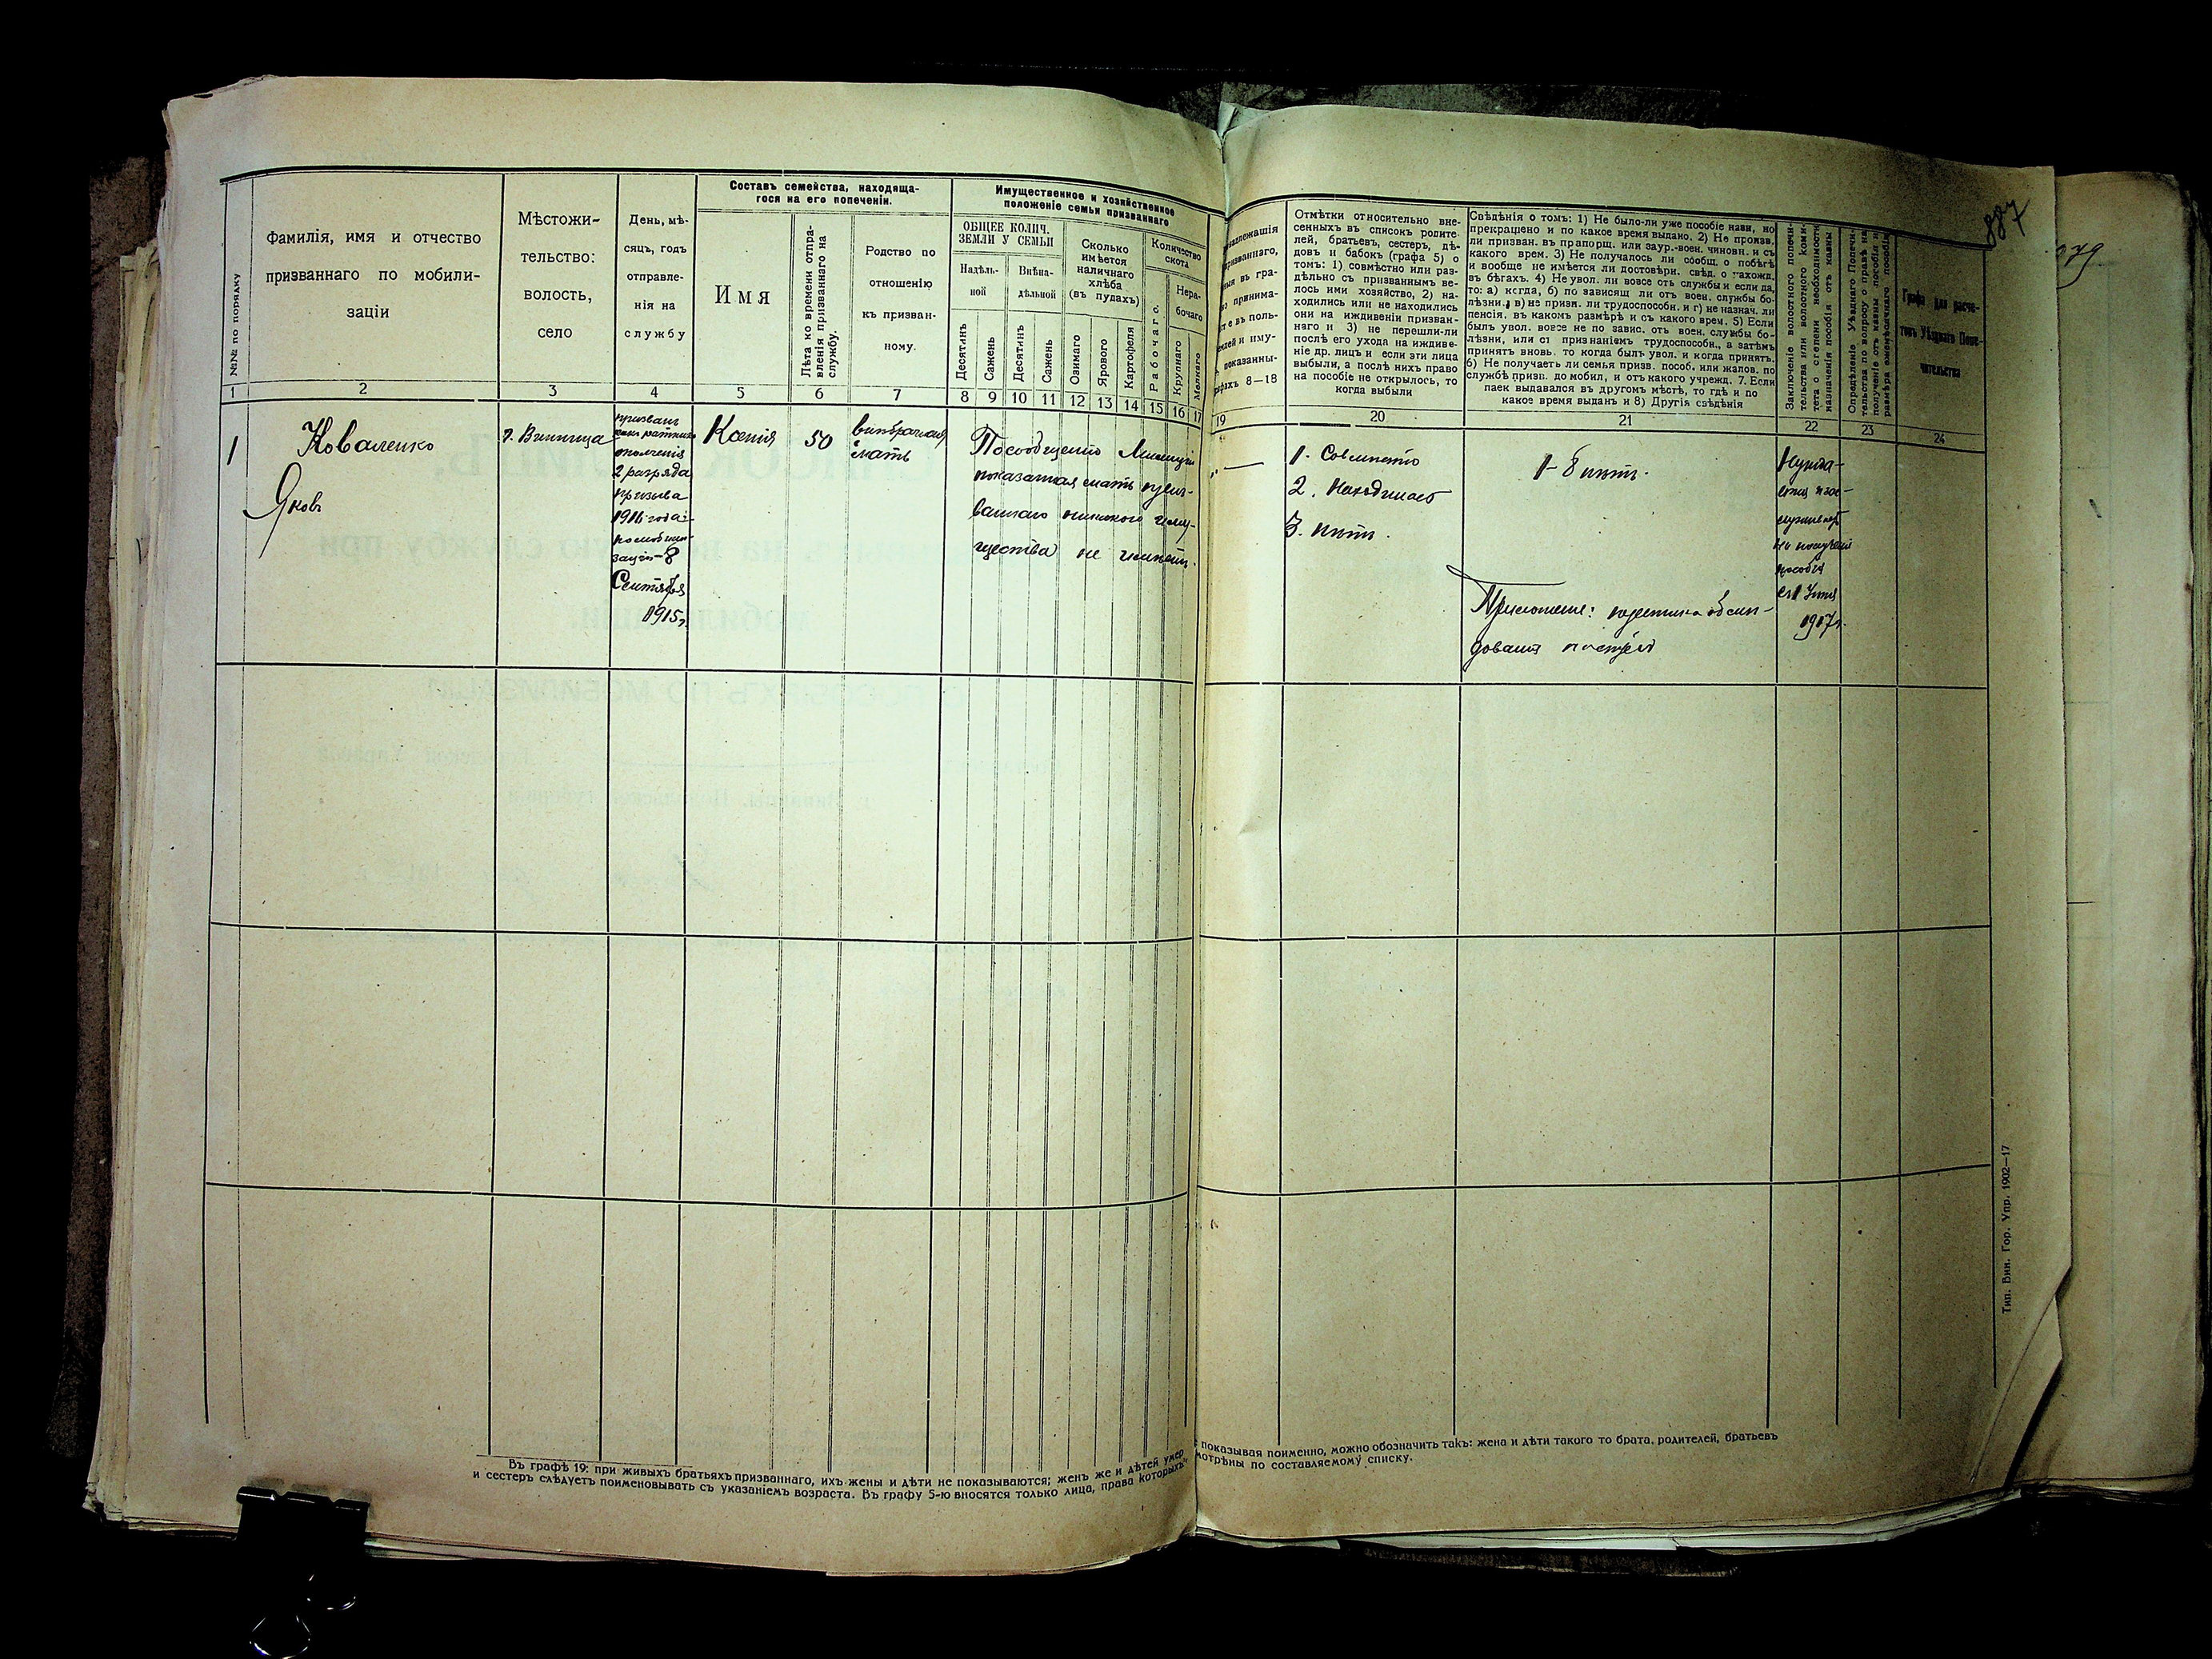 887
079
Составъ семейства, находяща-
гося на его попеченіи.
Имущественное и хозяйственное
положеніе семьи призваннаго
№№ по порядку
Фамилія, имя и отчество
призваннаго по мобили-
заціи
Мѣстожи-
тельство:
волость,
село
День, мѣ-
сяцъ, годъ
отправле-
нія на
службу
Имя
Лѣта ко времени отпра-
вленія призваннаго на
службу.
Родство по
отношенію
къ призван-
ному.
ОБЩЕЕ КОЛИЧ.
ЗЕМЛИ У СЕМЬИ
Надѣль-
ной
Внѣна-
дѣльной
Десятинъ
Сажень
Десятинъ
Сажень
Сколько
имѣется
наличнаго
хлѣба
(въ пудахъ)
Озимаго
Ярового
Картофеля
Количество
скота
Рабочаго.
Нера-
бочаго
Крупнаго
Мелкаго
надлежащія
призваннаго,
ныя въ гра-
но принима-
ст е въ поль-
землей и иму-
показанны-
рафахъ 8—18
Отмѣтки относительно вне-
сенныхъ въ списокъ родите-
лей, братьевъ, сестеръ, дѣ-
довъ и бабокъ (графа 5) о
томъ: 1) совмѣстно или раз-
дѣльно съ призваннымъ ве-
лось ими хозяйство, 2) на-
ходились или не находились
они на иждивеніи призван-
наго и 3) не перешли-ли
послѣ его ухода на иждиве-
ніе др. лицъ и если эти лица
выбыли, а послѣ нихъ право
на пособіе не открылось, то
когда выбыли
Свѣдѣнія о томъ: 1) Не было-ли уже пособіе назн, но
прекращено и по какое время выдано. 2) Не произв.
ли призван. въ прапорщ. или заур.-воен. чиновн. и съ
какого врем. 3) Не получалось ли сообщ. о побѣгѣ
и вообще не имѣется ли достовѣрн. свѣд. о нахожд.
въ бѣгахъ. 4) Не увол. ли вовсе отъ службы и если да,
то: а) когда, б) по зависящ ли отъ воен. службы бо-
лѣзни, в) не призн. ли трудоспособн. и г) не назнач. ли
пенсія, въ какомъ размѣрѣ и съ какого врем. 5) Если
былъ увол. вовсе не по завис. отъ воен. службы бо-
лѣзни, или съ признаніемъ трудоспособн., а затѣмъ
принятъ вновь, то когда былъ увол. и когда принятъ.
6) Не получаетъ ли семья призв. пособ. или жалов. по
службѣ призв. до мобил, и отъ какого учрежд. 7. Если
паек выдавался въ другомъ мѣстѣ, то гдѣ и по
какое время выданъ и 8) Другія свѣдѣнія
Заключеніе волостного попечи-
тельства или волостного коми-
тета о степени необходимости
назначенія пособія отъ казны
Опредѣленіе Уѣзднаго Попечи-
тельства по вопросу о правѣ на
полученіе отъ казны пособія и
размѣра ежемѣсячнаго пособія
Графа для расче-
товъ Уѣзднаго Попе-
чительства
1 2 3 4 5 6 7 8 9 10 11 12 13 14 15 16 17 19 20 21 22 23 24
1
Коваленко
Яковъ
г. Винница
призванъ
ратник
ополченія
2 разряда
призыва
1916 года
по мобили-
заціи 8
Сентября
1915 г.
Ксенія
50
внѣбрачная
мать
По сообщенію Милиціи
показанная мать
никакого иму-
щества не имѣетъ.
1. Совмѣстно
2. Находилась
3. Нѣтъ.
1-8 нѣтъ.
Приложеніе:
Нужда-
ется и зас-
луживаетъ
на полученіе
пособія
1917 г.
Въ графѣ 19: при живыхъ братьяхъ призваннаго, ихъ жены и дѣти не показываются; женъ же и дѣтей умер
показывая поименно, можно обозначить такъ: жена и дѣти такого то брата, родителей, братьевъ
и сестеръ слѣдуетъ поименовывать съ указаніемъ возраста. Въ графу 5-ю вносятся только лица, права которыхъ
мотрѣны по составляемому списку.
Тип. Вин. Гор. Упр. 1902—17